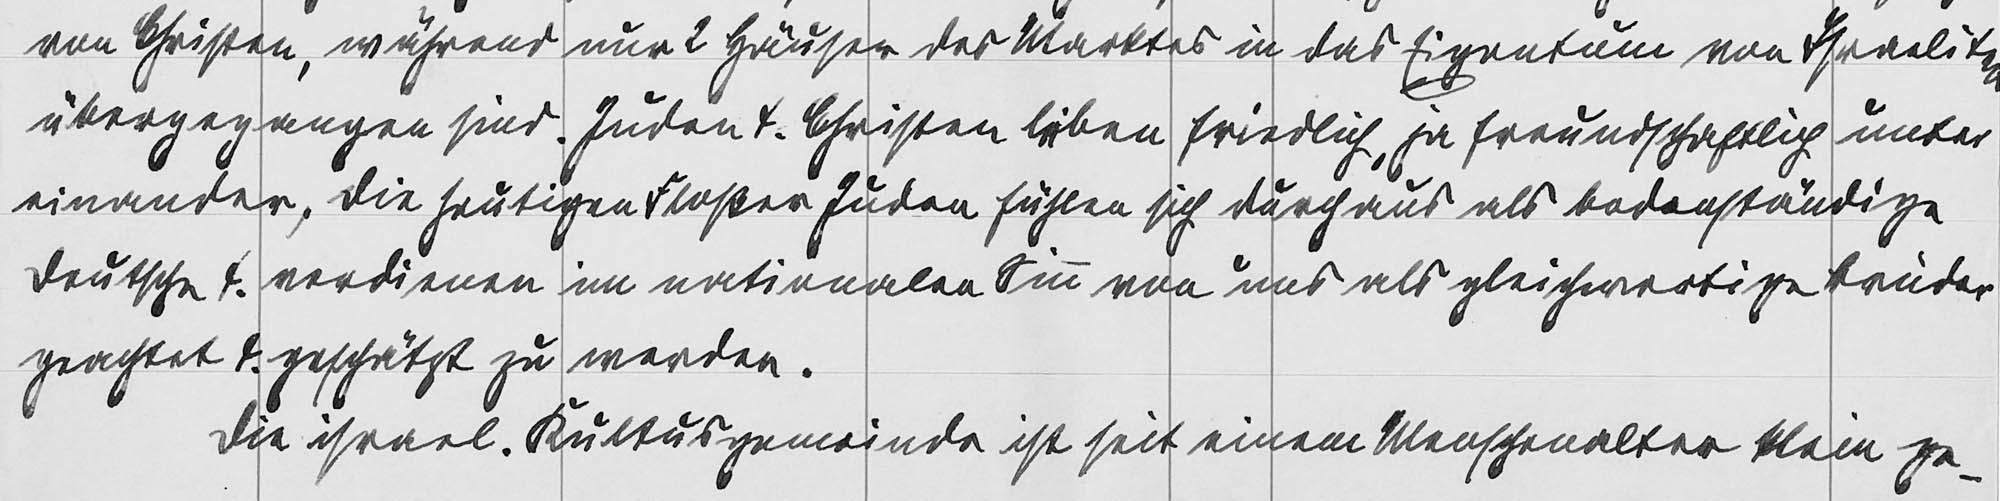 von Christen, während nur 2 Häuser des Marktes in das Eigentum von Israeliten
übergegangen sind. Juden u. Christen leben friedlich, ja freundschaftlich unter
einander, die heutigen Flosser Juden fühlen sich durchaus als bodenständige
Deutsche u. verdienen im nationalen Sin̄ von uns als gleichwertige Brüder
geachtet u. geschätzt zu werden.
Die israel. Kultusgemeinde ist seit einem Menschenalter klein ge-